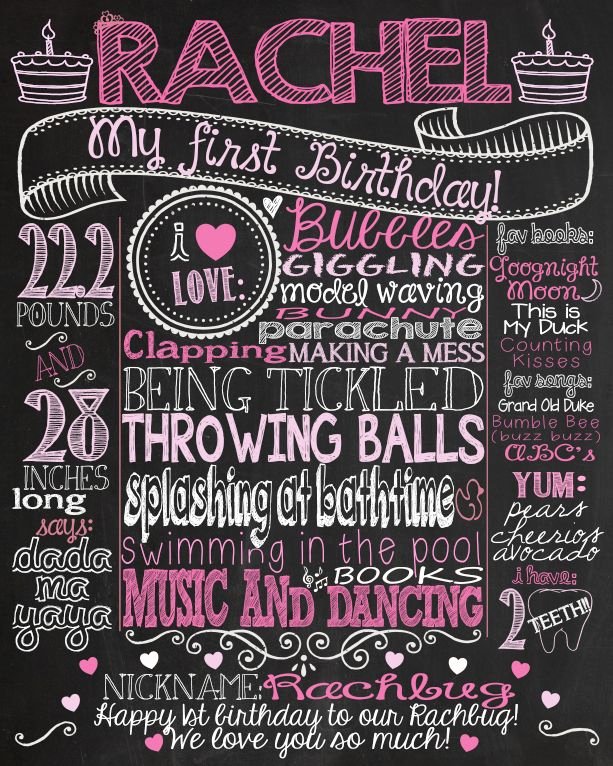 RACHEL
My first Birthday!
22.2
POUNDS
AND
28
INCHES
long
says:
dada
ma
yaya
i ♥
LOVE:
Bubbles
GIGGLING
model waving
BUNNY
parachute
Clapping MAKING A MESS
BEING TICKLED
THROWING BALLS
splashing at bathtime
swimming in the pool
BOOKS
MUSIC AND DANCING
fav books:
Goognight
Moon
This is
My Duck
Counting
Kisses
fav songs:
Grand Old Duke
Bumble Bee
(buzz buzz)
ABC's
YUM:
pears
cheerios
avocado
i have:
2 TEETH!!
NICKNAME: Rachbug
Happy 1st birthday to our Rachbug!
We love you so much!